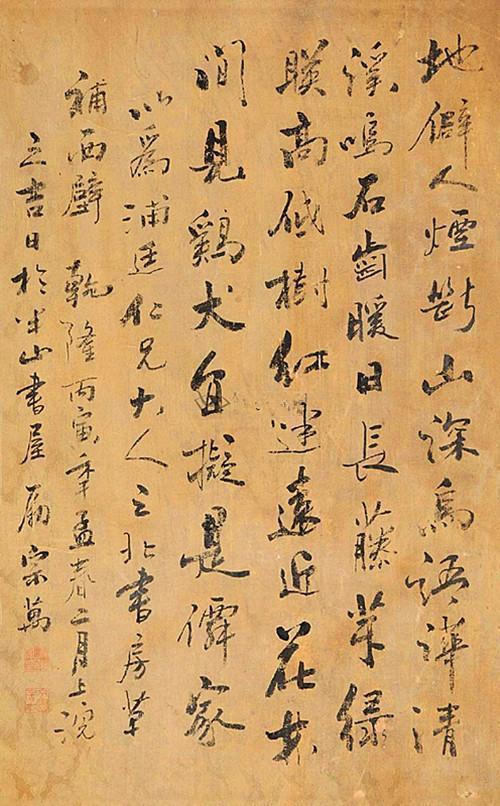 地僻人煙斷山深鳥語譁清
溪鳴石齒暖日長藤芽綠
映高低樹紅迷遠近花林
間見鷄犬直擬是僊家
以爲浦廷仁兄大人之北書房草
補西壁 乾隆丙寅年孟春二月上浣
之吉日於半山書屋勵宗萬